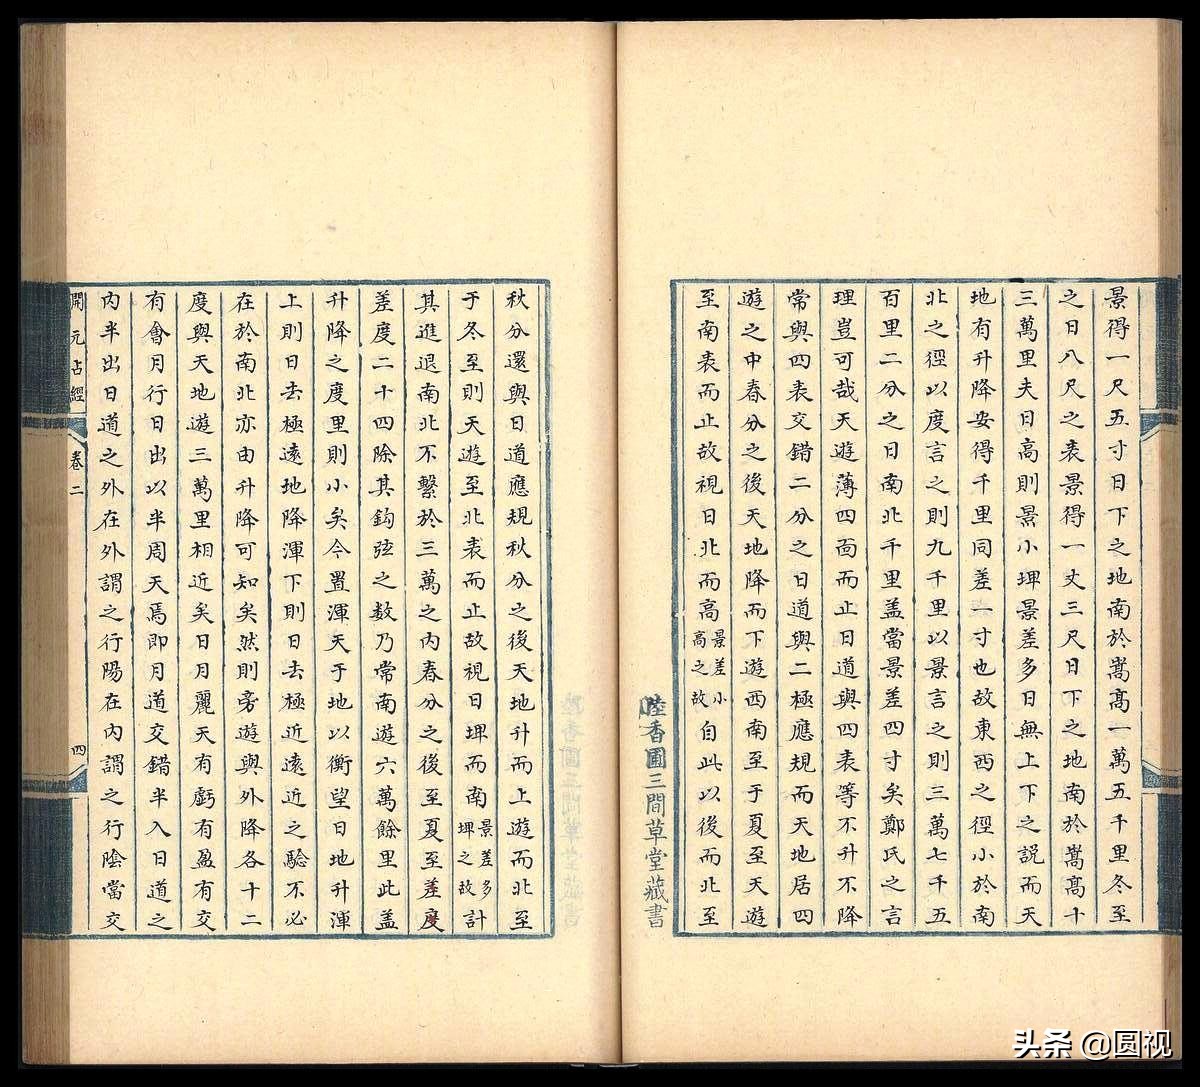 景得一尺五寸日下之地南於嵩高一萬五千里冬至
之日八尺之表景得一丈三尺日下之地南於嵩高十
三萬里夫日高則景小埤景差多日無上下之説而天
地有升降安得千里同差一寸也故東西之徑小於南
北之徑以度言之則九千里以景言之則三萬七千五
百里二分之日南北千里盖當景差四寸矣鄭氏之言
理豈可哉天遊薄四面而止日道與四表等不升不降
常與四表交錯二分之日道與二極應規而天地居四
遊之中春分之後天地降而下遊西南至于夏至天遊
至南表而止故視日北而高景差小高之故自此以後而北至
睦香圃三間草堂藏書
秋分還與日道應規秋分之後天地升而上遊而北至
于冬至則天遊至北表而止故視日埤而南景差多埤之故計
其進退南北不繫於三萬之内春分之後至夏至差度
差度二十四除其鈎弦之数乃常南遊六萬餘里此盖
升降之度里則小矣今置渾天于地以衡望日地升渾
上則日去極遠地降渾下則日去極近遠近之驗不必
在於南北亦由升降可知矣然則旁遊與外降各十二
度與天地遊三萬里相近矣日月麗天有虧有盈有交
有會月行日出以半周天焉即月道交錯半入日道之
内半出日道之外在外謂之行陽在内謂之行陰當交
開元占經
卷二
四
头条 @圆视